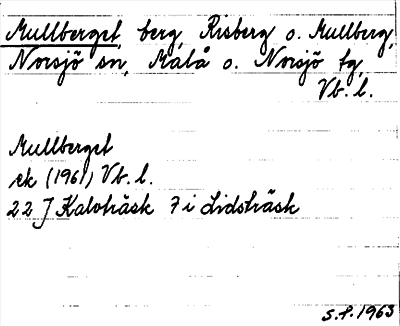 Mullberget, berg, Risberg o. Mullberg,
Norsjö sn, Malå o. Norsjö tg,
Vb. l.
Mullberget
ek (1961) Vb. l.
22 J Kalvträsk 7 i Lidsträsk
S.P. 1963